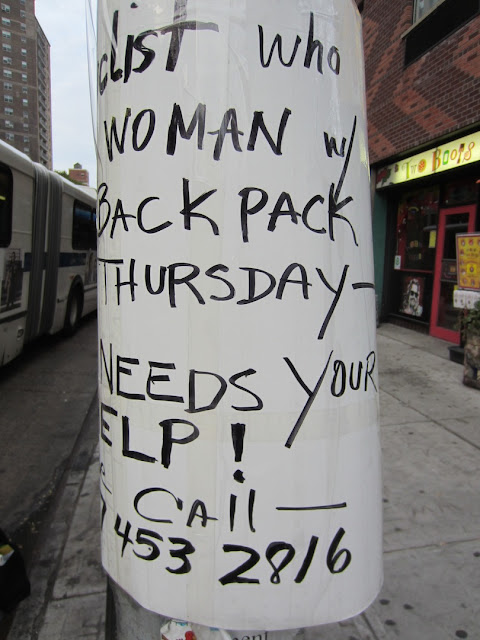 CLIST Who
WOMAN w/
BACKPACK
THURSDAY—
NEEDS YOUR
ELP!
CAll —
453 2816
Two Boots